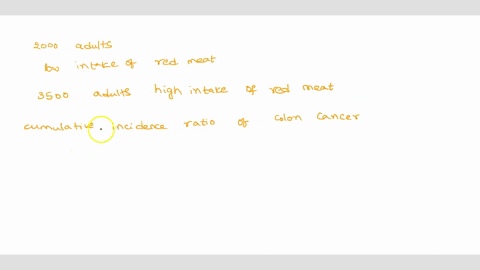 2000 adults
low intake of red meat
3500 adults high intake of red meat
cumulative incidence ratio of colon cancer